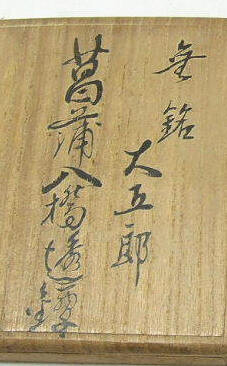 無銘
大五郎
菖蒲八橋透鐔